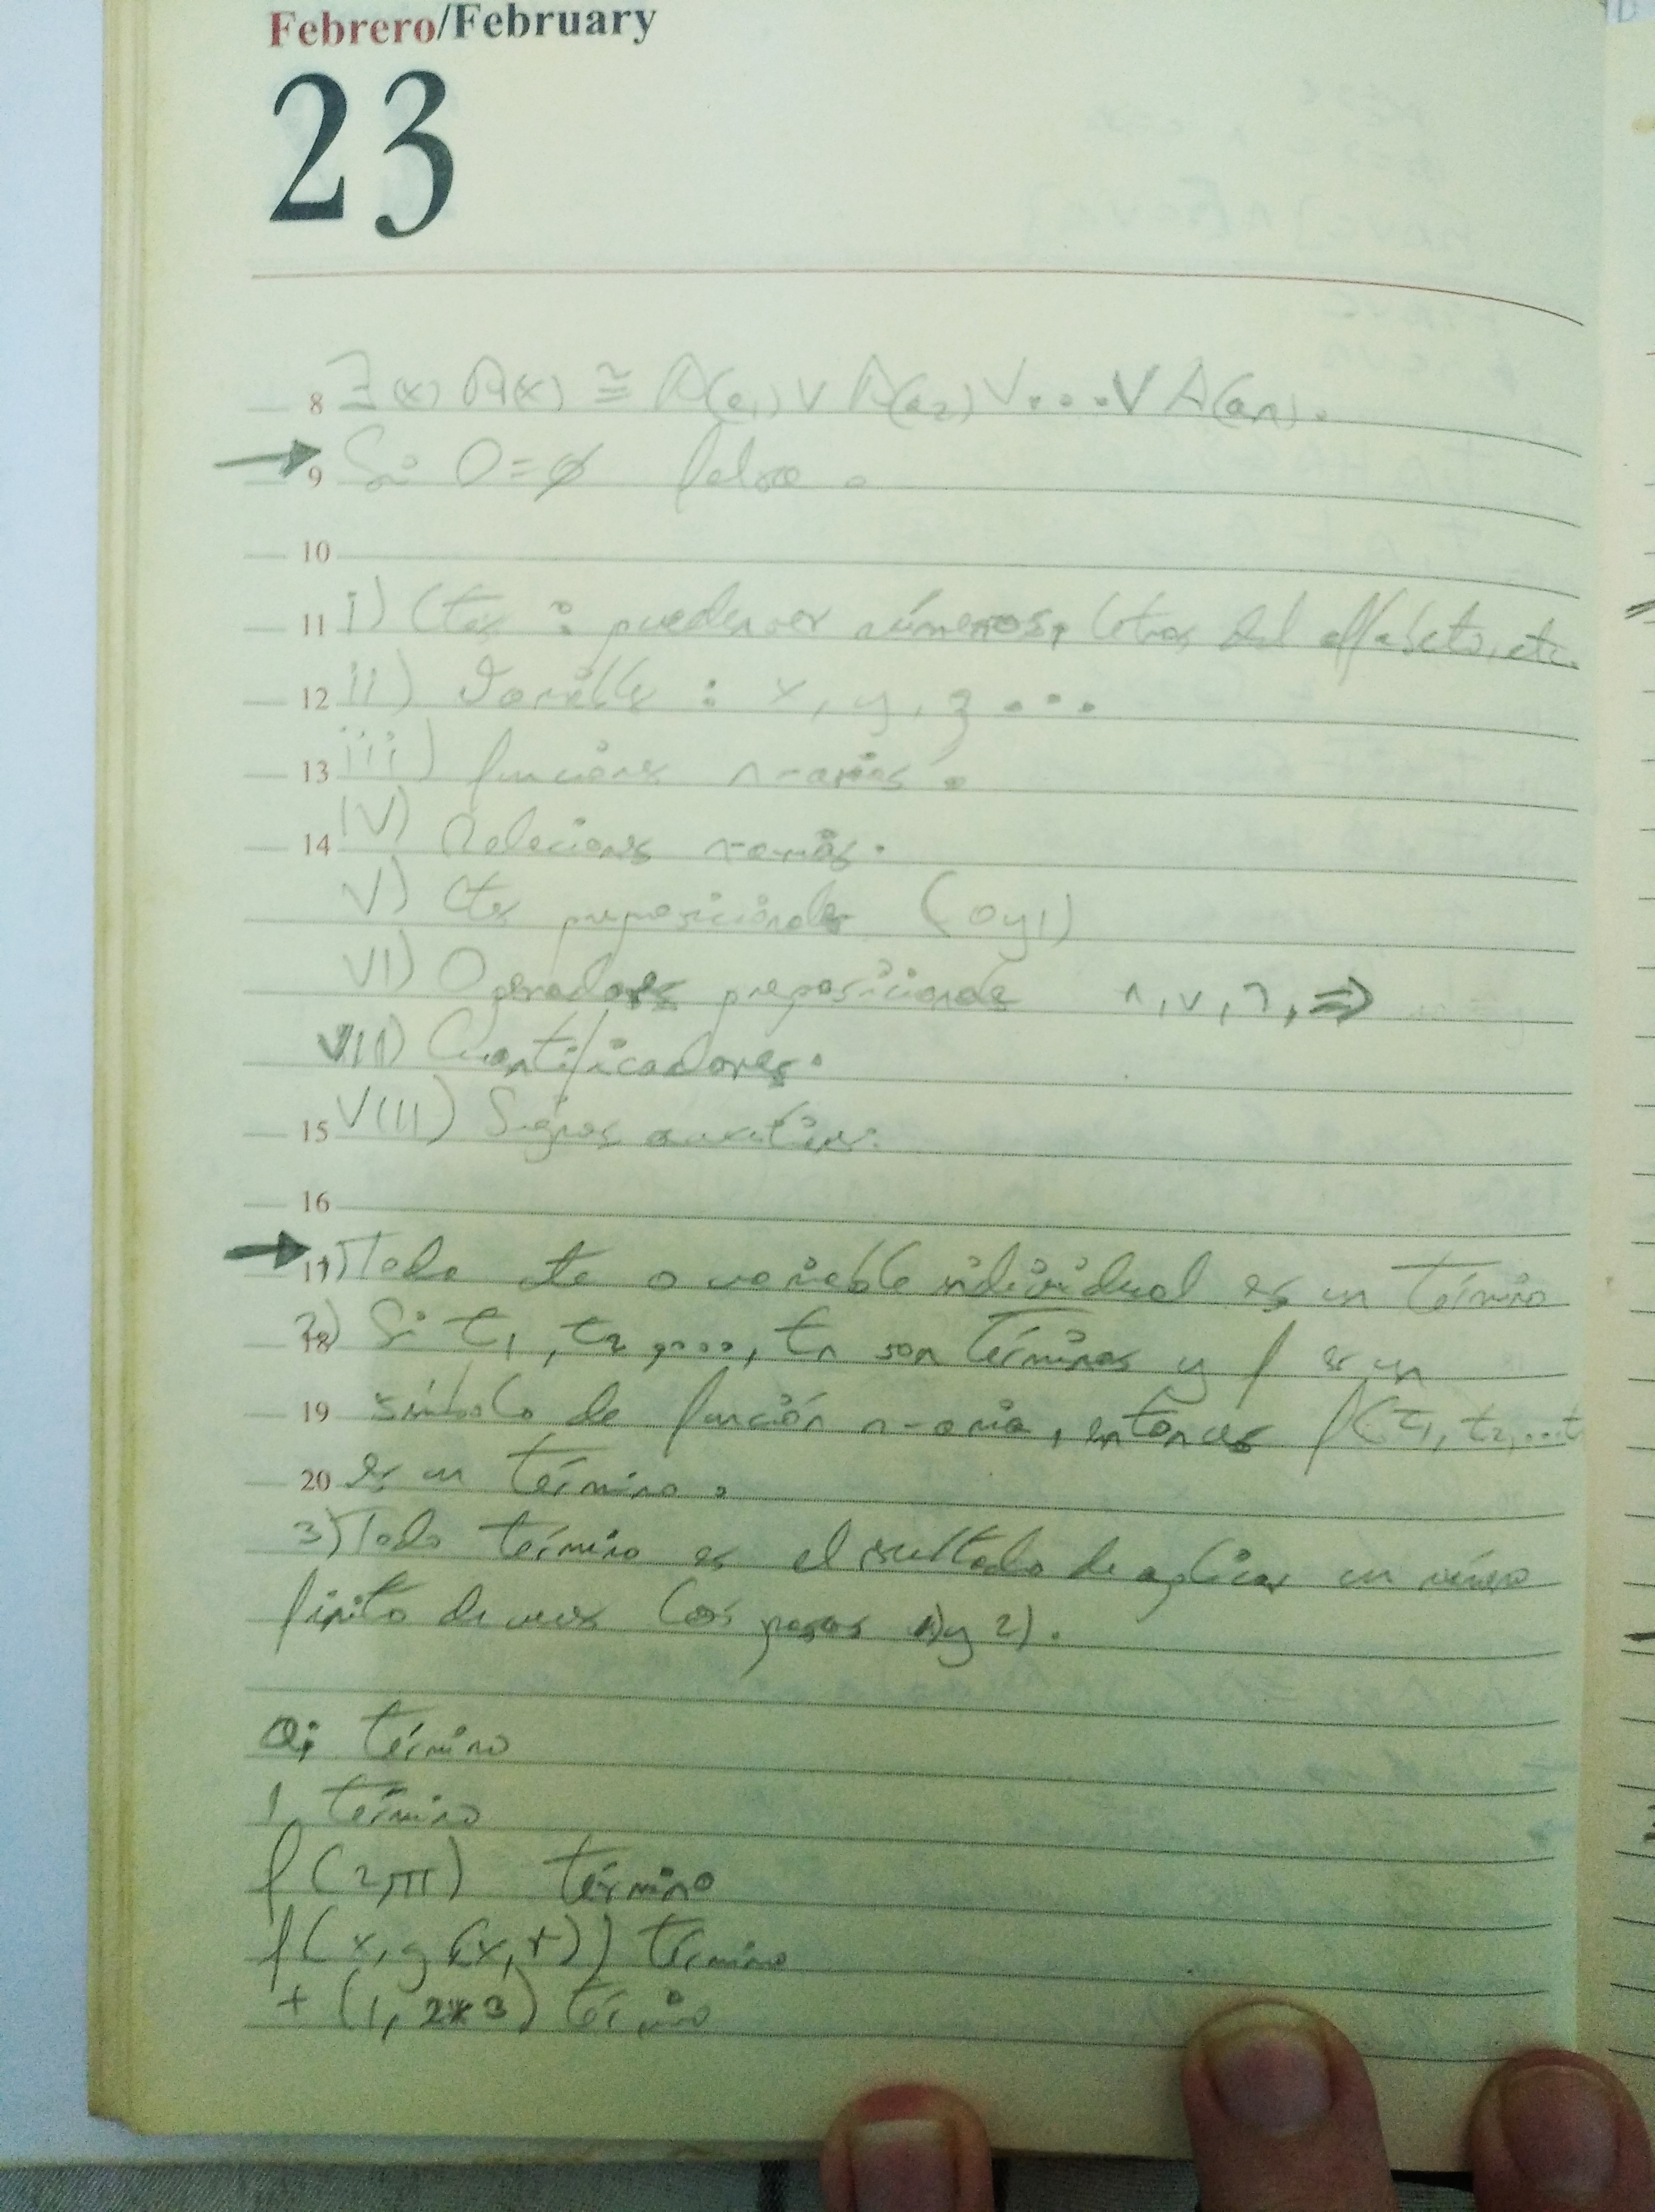 Febrero/February
23
8 ∃(x) A(x) ≅ A(a₁) ∨ A(a₂) ∨ ... ∨ A(aₙ).
→ 9 Si D=ø falso.
10
11 i) Ctes : pueden ser números, letras del alfabeto, etc.
12 ii) Variables : x, y, z ...
13 iii) funciones n-arias.
14 IV) Relaciones n-arias.
V) Ctes preposicionales (0 y 1)
VI) Operadores preposicionales ∧, ∨, ¬, ⇒
VII) Cuantificadores.
15 VIII) Signos auxiliares.
16
→ 17 1) Toda cte o variable individual es un término
18 2) Si t₁, t₂, ..., tₙ son términos y f es un
19 símbolo de función n-aria, entonces f(t₁, t₂, ...t
20 es un término.
3) Todo término es el resultado de aplicar un número
finito de veces los pasos 1) y 2).
a; término
1 término
f(2,π) término
f(x, g(x,r)) término
+ (1, 2*3) término